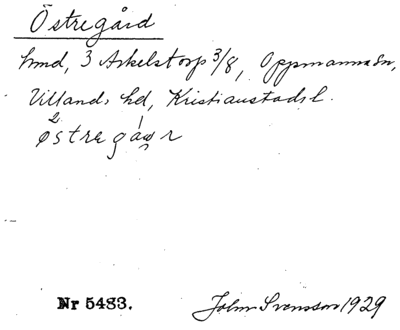 Östregård
hmd, 3 Arkelstorp 3/8, Oppmanna sn,
Villands hd, Kristianstads l.
østregår
Nr 5483.
John Svensson 1929